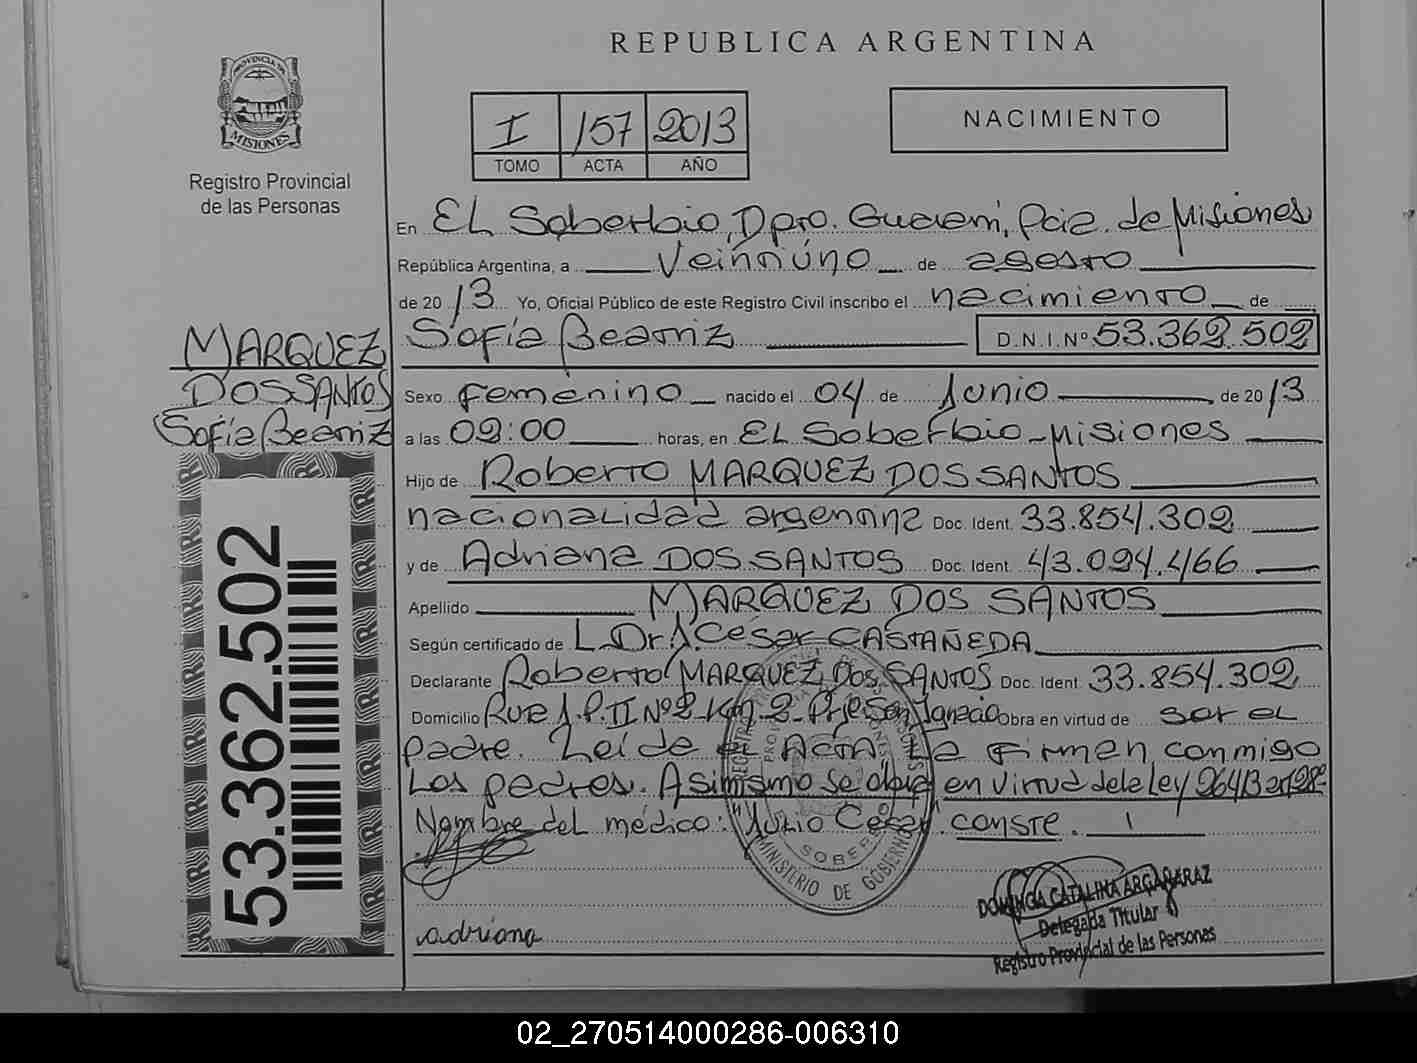 REPUBLICA ARGENTINA
PROVINCIA DE
MISIONES
Registro Provincial
de las Personas
I 157 2013
TOMO ACTA AÑO
NACIMIENTO
En EL Soberbio, Dpto. Guarani, Pcia. de Misiones
República Argentina, a Veintiúno de agosto
de 2013 Yo, Oficial Público de este Registro Civil inscribo el nacimiento de
Sofía Beatriz D.N.I. Nº 53.362.502
MARQUEZ
DOS SANTOS
Sofía Beatriz
Sexo femenino nacido el 04 de Junio de 2013
a las 09:00 horas, en EL Soberbio-Misiones
Hijo de Roberto MARQUEZ DOS SANTOS
nacionalidad argentina Doc. Ident. 33.854.302
y de Adriana DOS SANTOS Doc. Ident. 43.094.466
Apellido MARQUEZ DOS SANTOS
Según certificado de L. Dr. J. César CASTAÑEDA
Declarante Roberto MARQUEZ DOS SANTOS Doc. Ident. 33.854.302
Domicilio Ruta J.P. II Nº 2 Km 2 Pje San Ignacio Obra en virtud de ser el
padre. Leída el Acta la firman conmigo
Los padres. Asimismo se obra en virtud de la Ley 26413 art 28º
Nombre del médico: "Julio Cesar". conste.
adriana
MINISTERIO DE GOBIERNO
DOMINGA CATALINA ARGAÑARAZ
Delegada Titular
Registro Provincial de las Personas
53.362.502
02_270514000286-006310